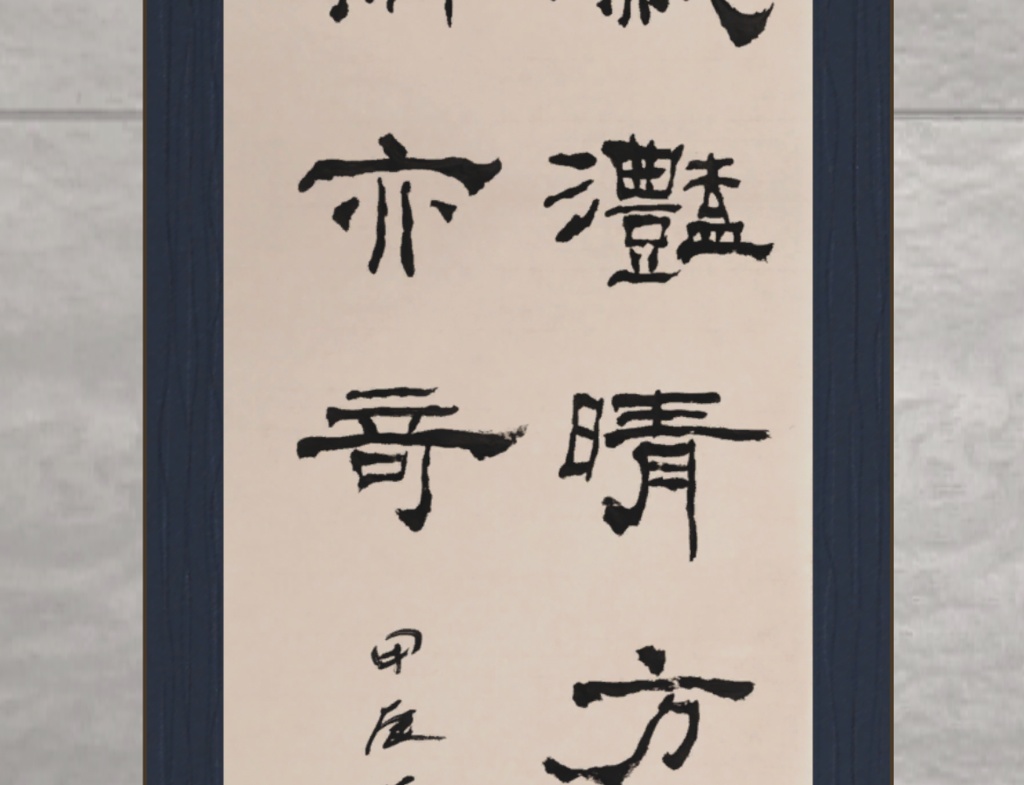 灩晴方
亦竒
甲辰